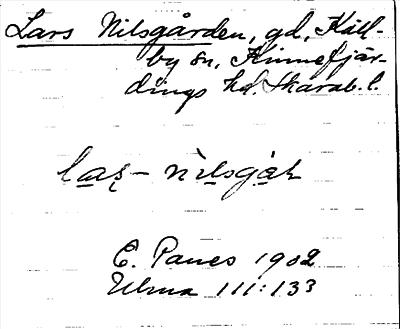 Lars Nilsgården, gd, Käll-
by sn, Kinnefjär-
dings hd. Skarab. l.
las- nilsgaḷ
E. Panes 1902
Ulma 111:133